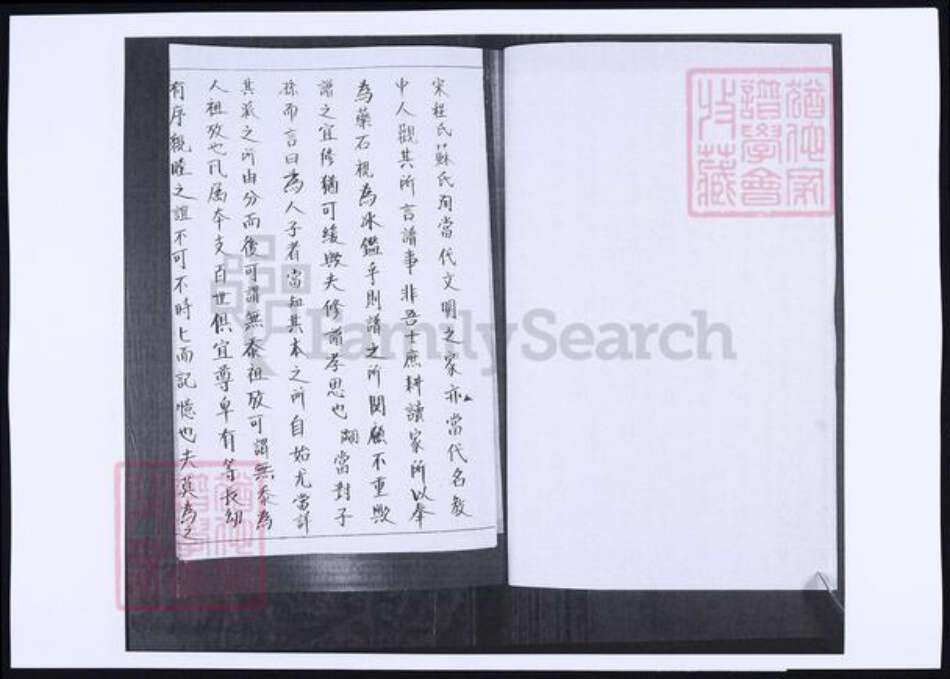 宋程氏蘇氏洵當代文明之家亦當代名教
中人觀其所言譜事非吾士庶耕讀家所以奉
為藥石視為冰鑑乎則譜之所関顧不重歟
譜之宜修猶可緩歟夫修譜孝思也 嘗對子
孫而言曰為人子者當知其本之所自始尤當詳
其派之所由分而後可謂無忝祖攷可謂無忝為
人祖攷也凡屬本支百世俱宜尊卑有等長幼
有序親睦之誼不可不時匕而記憶也夫莫為之
譜學會
收藏
FamilySearch